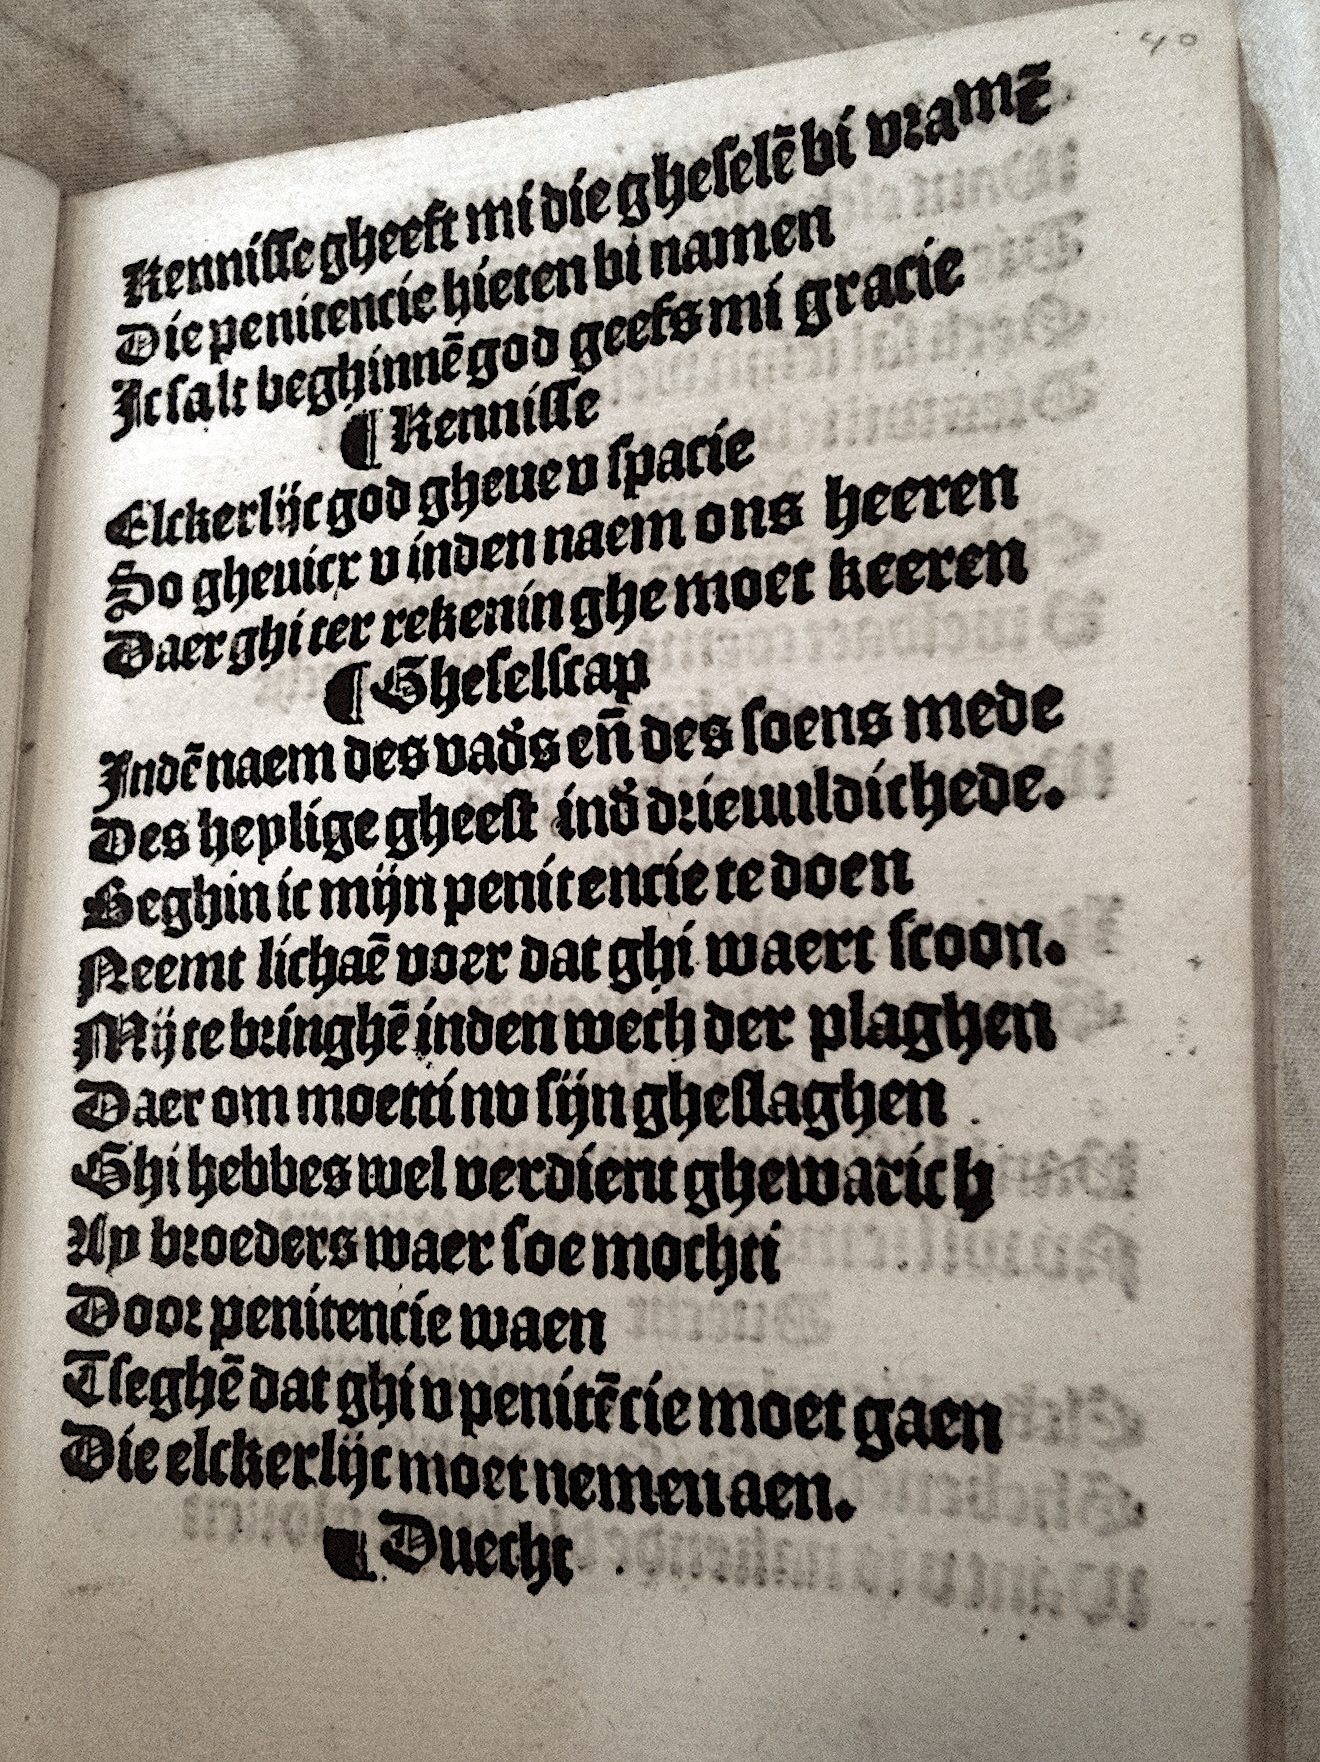 40
Kennisse gheeft mi die gheselē bi vramē
Die penitencie hieten bi namen
Ic salt beghinnē god geefs mi gracie
¶ Kennisse
Elckerlijc god gheue v spacie
So gheuicx v inden naem ons heeren
Daer ghi ter rekeninghe moet keeren
¶ Gheselscap
Indē naem des vad̕s en̄ des soens mede
Des heylige gheest ind̕ drieuuldichede.
Beghin ic mijn penitencie te doen
Neemt lichaē voer dat ghi waert scoon.
Mij te bringhē inden wech der plaghen
Daer om moetti nv sijn gheslaghen
Ghi hebbes wel verdient ghewarich
Ay broeders waer soe mochti
Door penitencie waen
Tseghē dat ghi v penitēcie moet gaen
Die elckerlijc moet nemen aen.
¶ Duecht